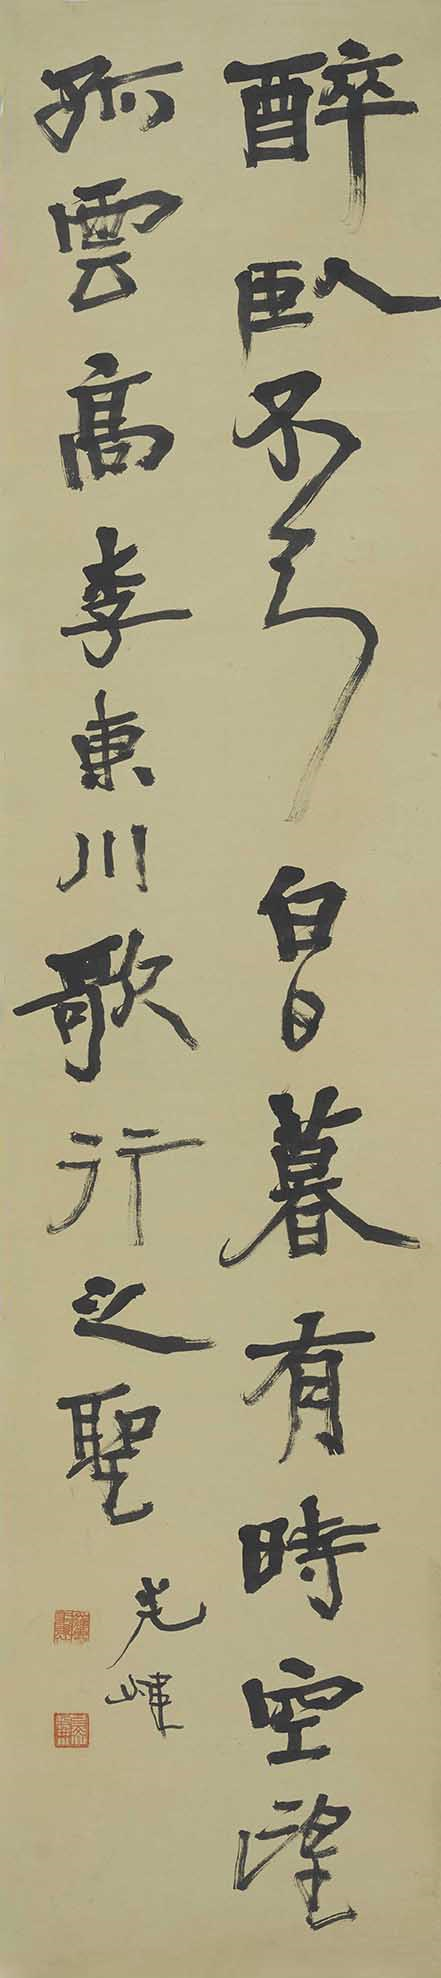 醉臥不知白日暮有時空望
孤雲高李東川歌行之聖
光煒